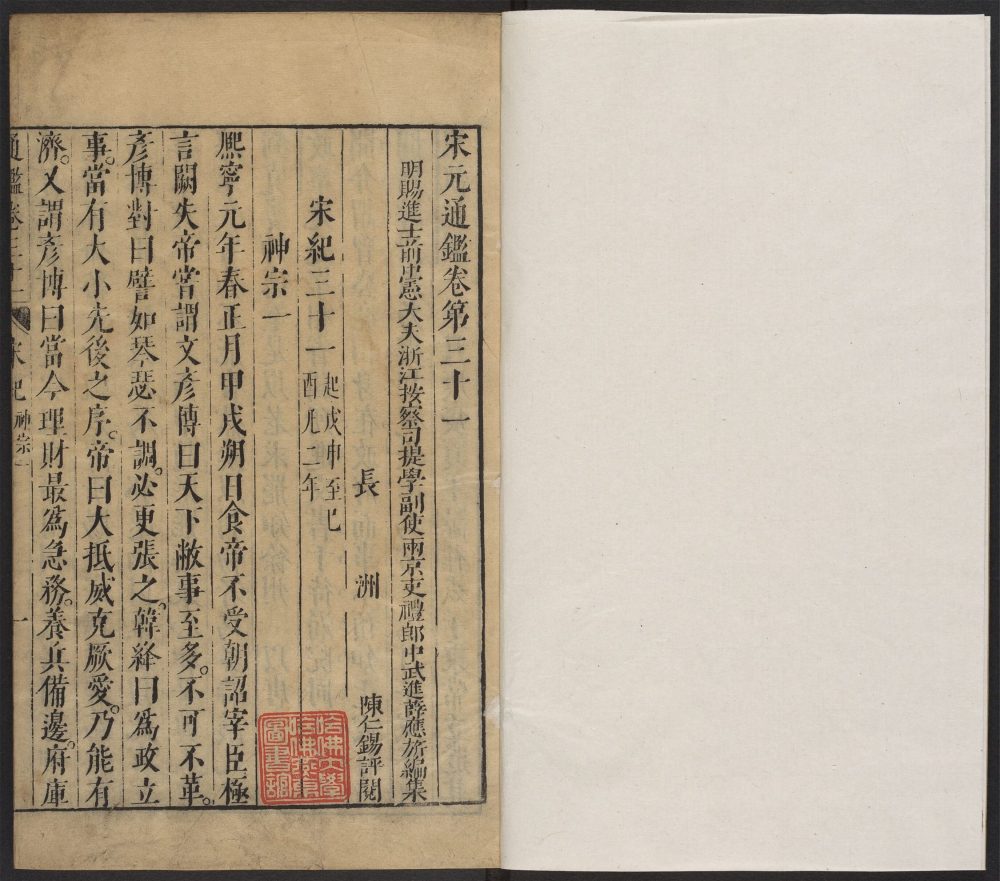 宋元通鑑卷第三十一
明賜進士前中憲大夫浙江按察司提學副使兩京吏禮郎中武進薛應旂編集
長洲 陳仁錫評閱
宋紀三十一 起戊申至己酉凡二年
神宗一
熈寧元年春正月甲戌朔日食帝不受朝詔宰臣極
言闕失帝嘗謂文彥博曰天下敝事至多。不可不革。
彥博對曰譬如琴瑟不調。必更張之。韓絳曰爲政立
事。當有大小先後之序。帝曰大抵威克厥愛。乃能有
濟。又謂彥博曰當今理財最爲急務。養兵備邊。府庫
通鑑卷三十一 宋紀 神宗一 一
哈佛大學
哈佛燕京
圖書館